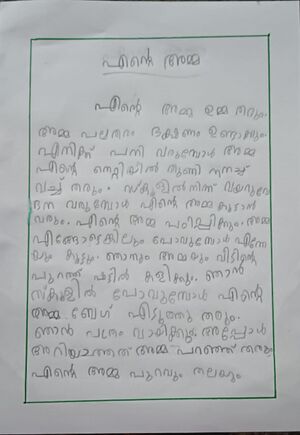 എന്റെ അമ്മ
എന്റെ അമ്മ ഉമ്മ തരും.
അമ്മ പലതരം ഭക്ഷണം ഉണ്ടാക്കും.
എനിക്ക് പനി വരുമ്പോൾ അമ്മ
എന്റെ നെറ്റിയിൽ തുണി നനച്ച്
വച്ച് തരും. സ്കൂളിൽനിന്ന്
വരുമ്പോൾ എന്റെ അമ്മ കൂടാൻ
വരും. എന്റെ അമ്മ പഠിപ്പിക്കും. അമ്മ
എങ്ങോട്ടെങ്കിലും പോവുമ്പോൾ എന്നേ
യും കൂട്ടും. ഞാനും അമ്മയും വീടിന്റെ
പുറത്ത് ഷട്ടിൽ കളിക്കും. ഞാൻ
സ്കൂളിൽ പോവുമ്പോൾ എന്റെ
അമ്മ ബേഗ് എടുത്തു തരും.
ഞാൻ പത്രം വായിക്കും അപ്പോൾ
അറിയാത്തത് അമ്മ പറഞ്ഞ് തരും
എന്റെ അമ്മ പുറവും തലയും